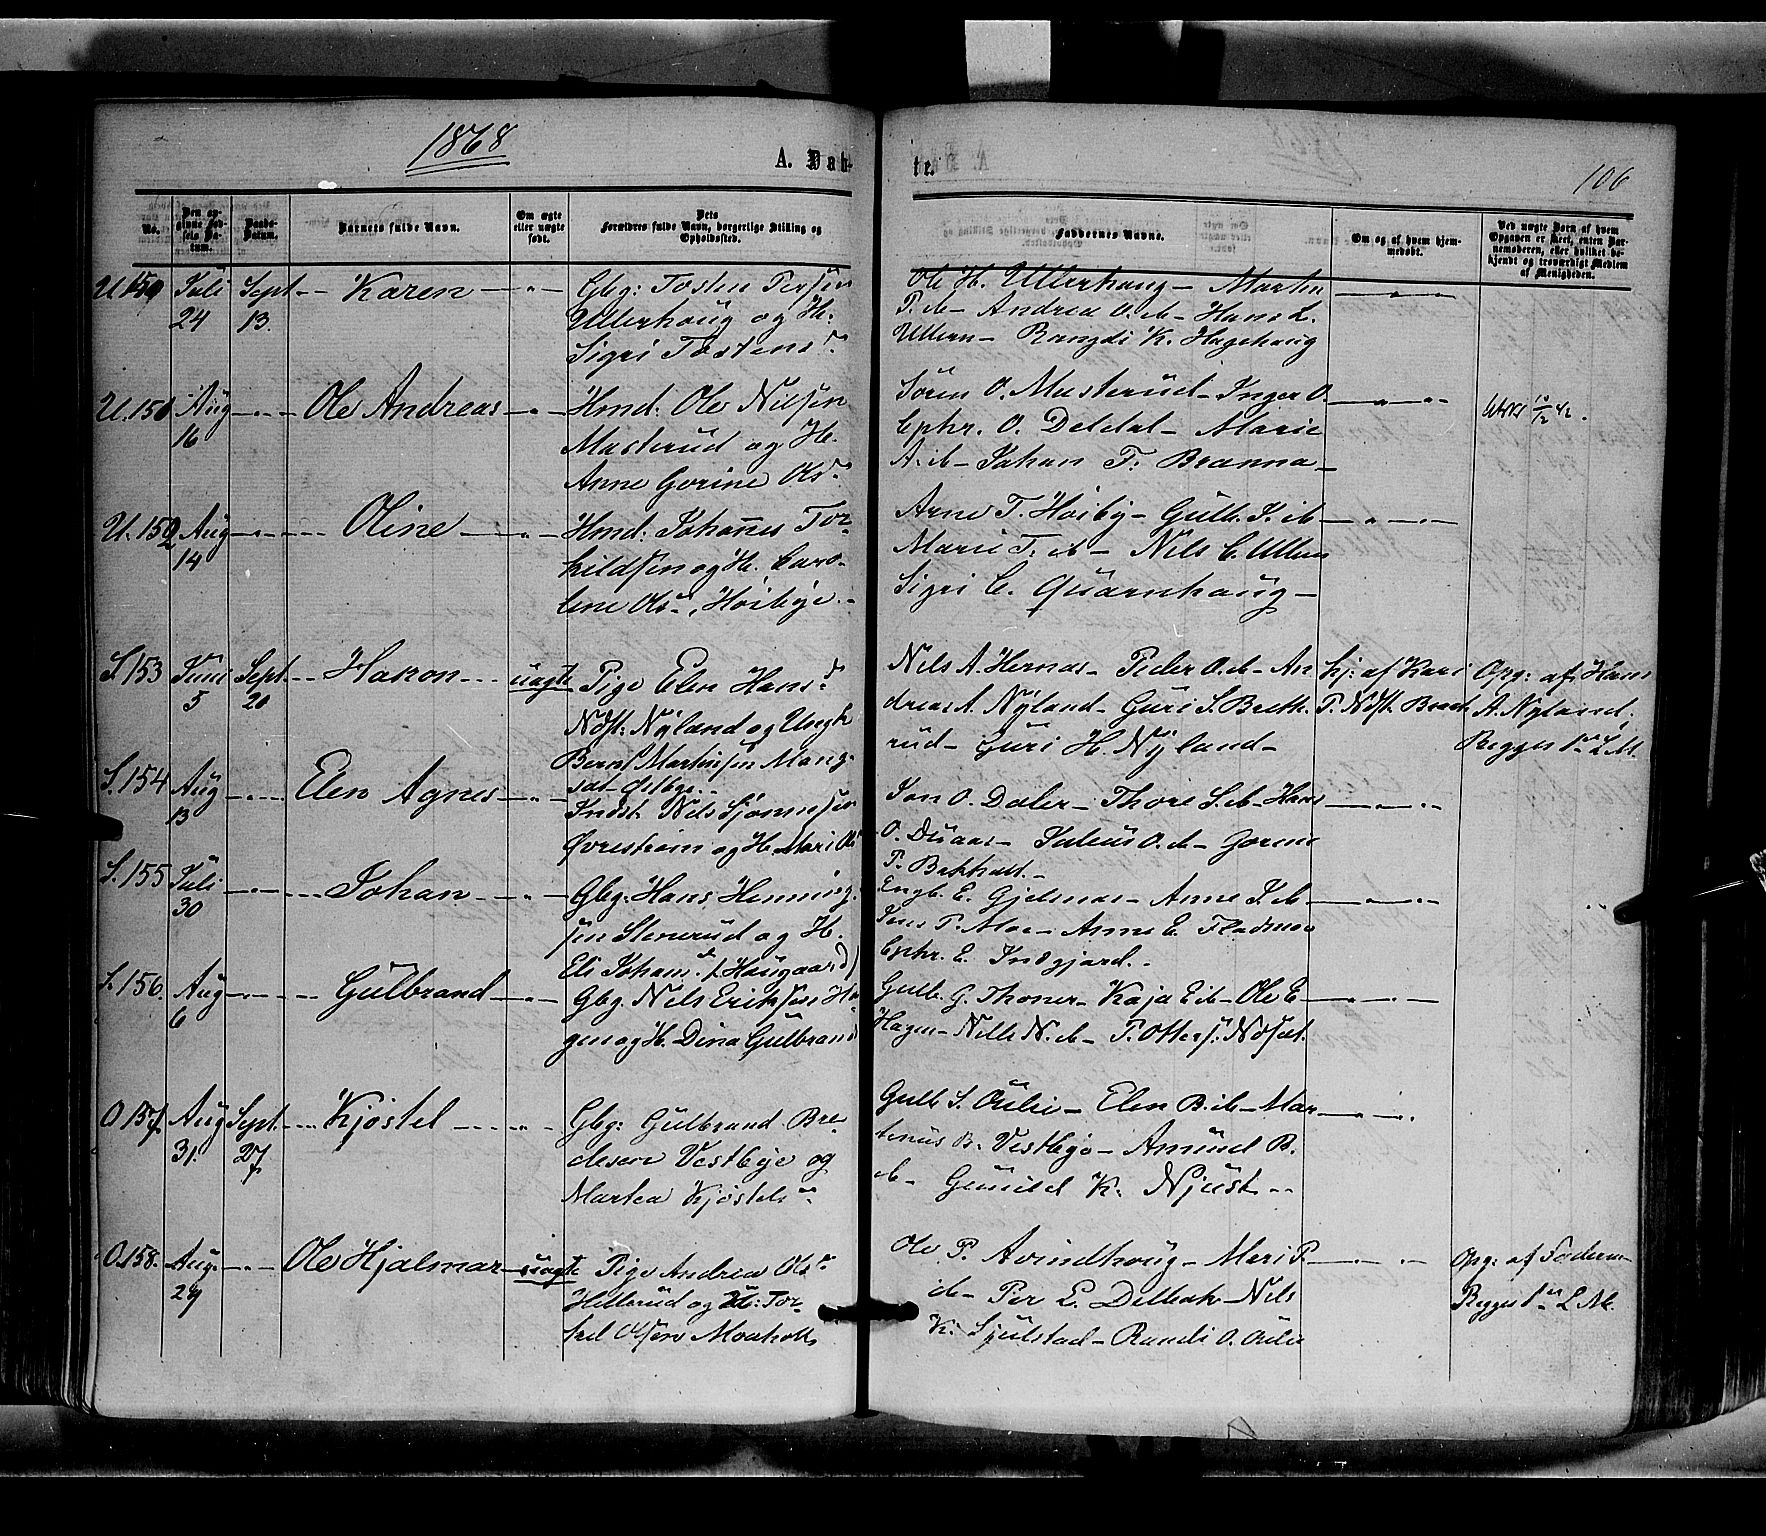 1868
A. Døb-
te.
106
No.
Den opgivne Fødsels Datum.
Daabs-Datum.
Barnets fulde Navn.
Om ægte eller uægte født.
Dets Forældres fulde Navn, borgerlige Stilling og Opholdssted.
Faddernes Navne.
Om og af hvem hjemmedøbt.
Ved uægte Børn af hvem Opgaven er skeet, enten Barnemoderen, eller hvilket bekjendt og troværdigt Medlem af Menigheden.
U. 150 Juli 24 Sept 13. Karen
Gbg: Tosten Persen
Ullerhoug og H.
Sigri Tostensd
Ole H. Ullerhaug – Marthe
P. ib – Andrea O. ib – Hans L.
Ullern – Rangdi K. Hagehaug
U. 151 Aug 16 Ole Andreas
Hmd: Ole Nilsen
Masterud og H.
Anne Gorine Olsd
Søren O. Masterud – Inger O.
Ephr. O. Deldal – Marie
A. ib – Johan T. Brænna –
U. 152 Aug 14 Oline
Hmd: Johanes Tor-
kildsen og H. Caro-
line Olsd, Høibye.
Arne T. Høiby – Gulb. J. ib –
Marie T. ib – Nils C. Ullern
Sigri C. Quarnhaug –
S. 153 Juni 5 Sept 20 Hakon uægte
Pige Elen Hansd
Ndst: Nyland og Ungk
Bernt Martinsen Mang-
sat Østbye.
Nils A. Hernæs – Peder O. ib – An
dreas A. Nyland – Guri S. Breth.
rud – Guri H. Nyland –
Hj: af Kari
P. Ndst. Breth
Opg: af Hans
A. Nyland,
Begges 1ste L. M.
S. 154 Aug 13 Elen Agnes
Indst Nils Sjønnesen
Øvrestrøm og H. Mari Olsd
Jon O. Daler – Thore S. ib – Hans
O. Duaas – Julius O. ib – Gorine
P. Bekholt. –
S. 155 Juli 30 Johan
Gbg: Hans Henning-
sen Stenerud og H.
Eli Johansd. (Haugaard)
Engb. E. Gjelsnæs – Anne J. ib –
Jens P. Moe – Anne E. Fladmoe
Ephr. E. Indgjard. –
S. 156. Aug 6 Gulbrand
Gbg. Nils Eriksen Ha
gen og H. Dina Gulbrandsd
Gulb. G. Thoner – Kaja E ib – Ole E
Hagen – Nills N. ib – P. Otters. Ndset.
O. 157. Aug 31. Sept. 27 Kjøstel
Gbg: Gulbrand Bre-
desen Vestbye og
Martea Kjøstelsd
Gulb. S. Oulie – Elen B. ib – Mar
tinus B. Vestbye – Amund B.
ib – Gunild K. Njust
O. 158. Aug. 24 Ole Hjalmar uægte
Pige Andrea Olsd
Hellerud og U: Tor-
kel Olsen Moaholt
Ole P. Avindhoug – Mari P.
ib – Per E. Delbak – Nils
K. Sjulstad – Randi O. Oulie
Opg: af Faderen
Begges 1ste L. M.